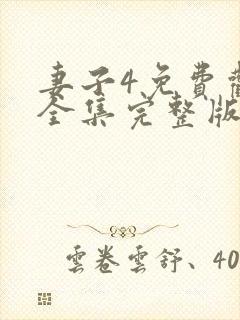 妻子4免費
全集完整版
雲卷雲舒、40